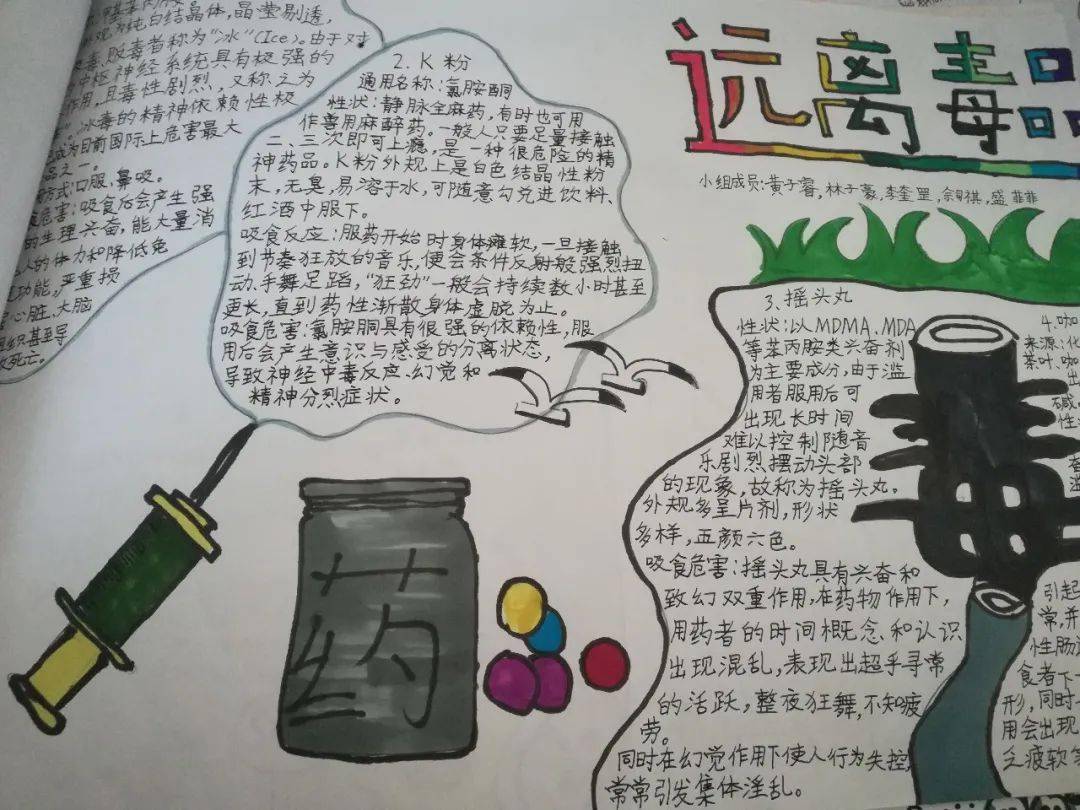 为纯白结晶体，晶莹剔透，
贩毒者称为“冰”(Ice)。由于对
神经系统具有极强的
作用，且毒性剧烈，又称之为
冰毒的精神依赖性极
成为目前国际上危害最大
品之一。
方式：口服、鼻吸。
危害：吸食后会产生强
的生理兴奋，能大量消
人的体力和降低免
功能，严重损
心脏、大脑
组织甚至导
死亡。
2. K 粉
通用名称：氯胺酮
性状：静脉全麻药，有时也可用
作兽用麻醉药。一般人只要足量接触
二、三次即可上瘾，是一种很危险的精
神药品。K粉外规上是白色结晶性粉
末，无臭，易溶于水，可随意勾兑进饮料、
红酒中服下。
吸食反应：服药开始时身体瘫软，一旦接触
到节奏狂放的音乐，便会条件反射般强烈扭
动、手舞足蹈，“狂劲”一般会持续数小时甚至
更长，直到药性渐散身体虚脱为止。
吸食危害：氯胺胴具有很强的依赖性，服
用后会产生意识与感受的分离状态，
导致神经中毒反应、幻觉和
精神分烈症状。
药
远离毒品
小组成员：黄子睿，林子豪，李奎罡，祺，盛菲菲
3. 摇头丸
性状：以MDMA、MDA
等苯丙胺类兴奋剂
为主要成分，由于滥
用者服用后可
出现长时间
难以控制随音
乐剧烈摆动头部
的现象，故称为摇头丸。
外规多呈片剂，形状
多样，五颜六色。
吸食危害：摇头丸具有兴奋和
致幻双重作用，在药物作用下，
用药者的时间概念和认识
出现混乱，表现出超乎寻常
的活跃，整夜狂舞，不知疲
劳。
同时在幻觉作用下使人行为失控，
常常引发集体淫乱。
4. 咖
来源：化
茶叶、咖
出
碱
性
引起
常，并
性肠
食者下一
形，同时
用会出现
乏疲软等